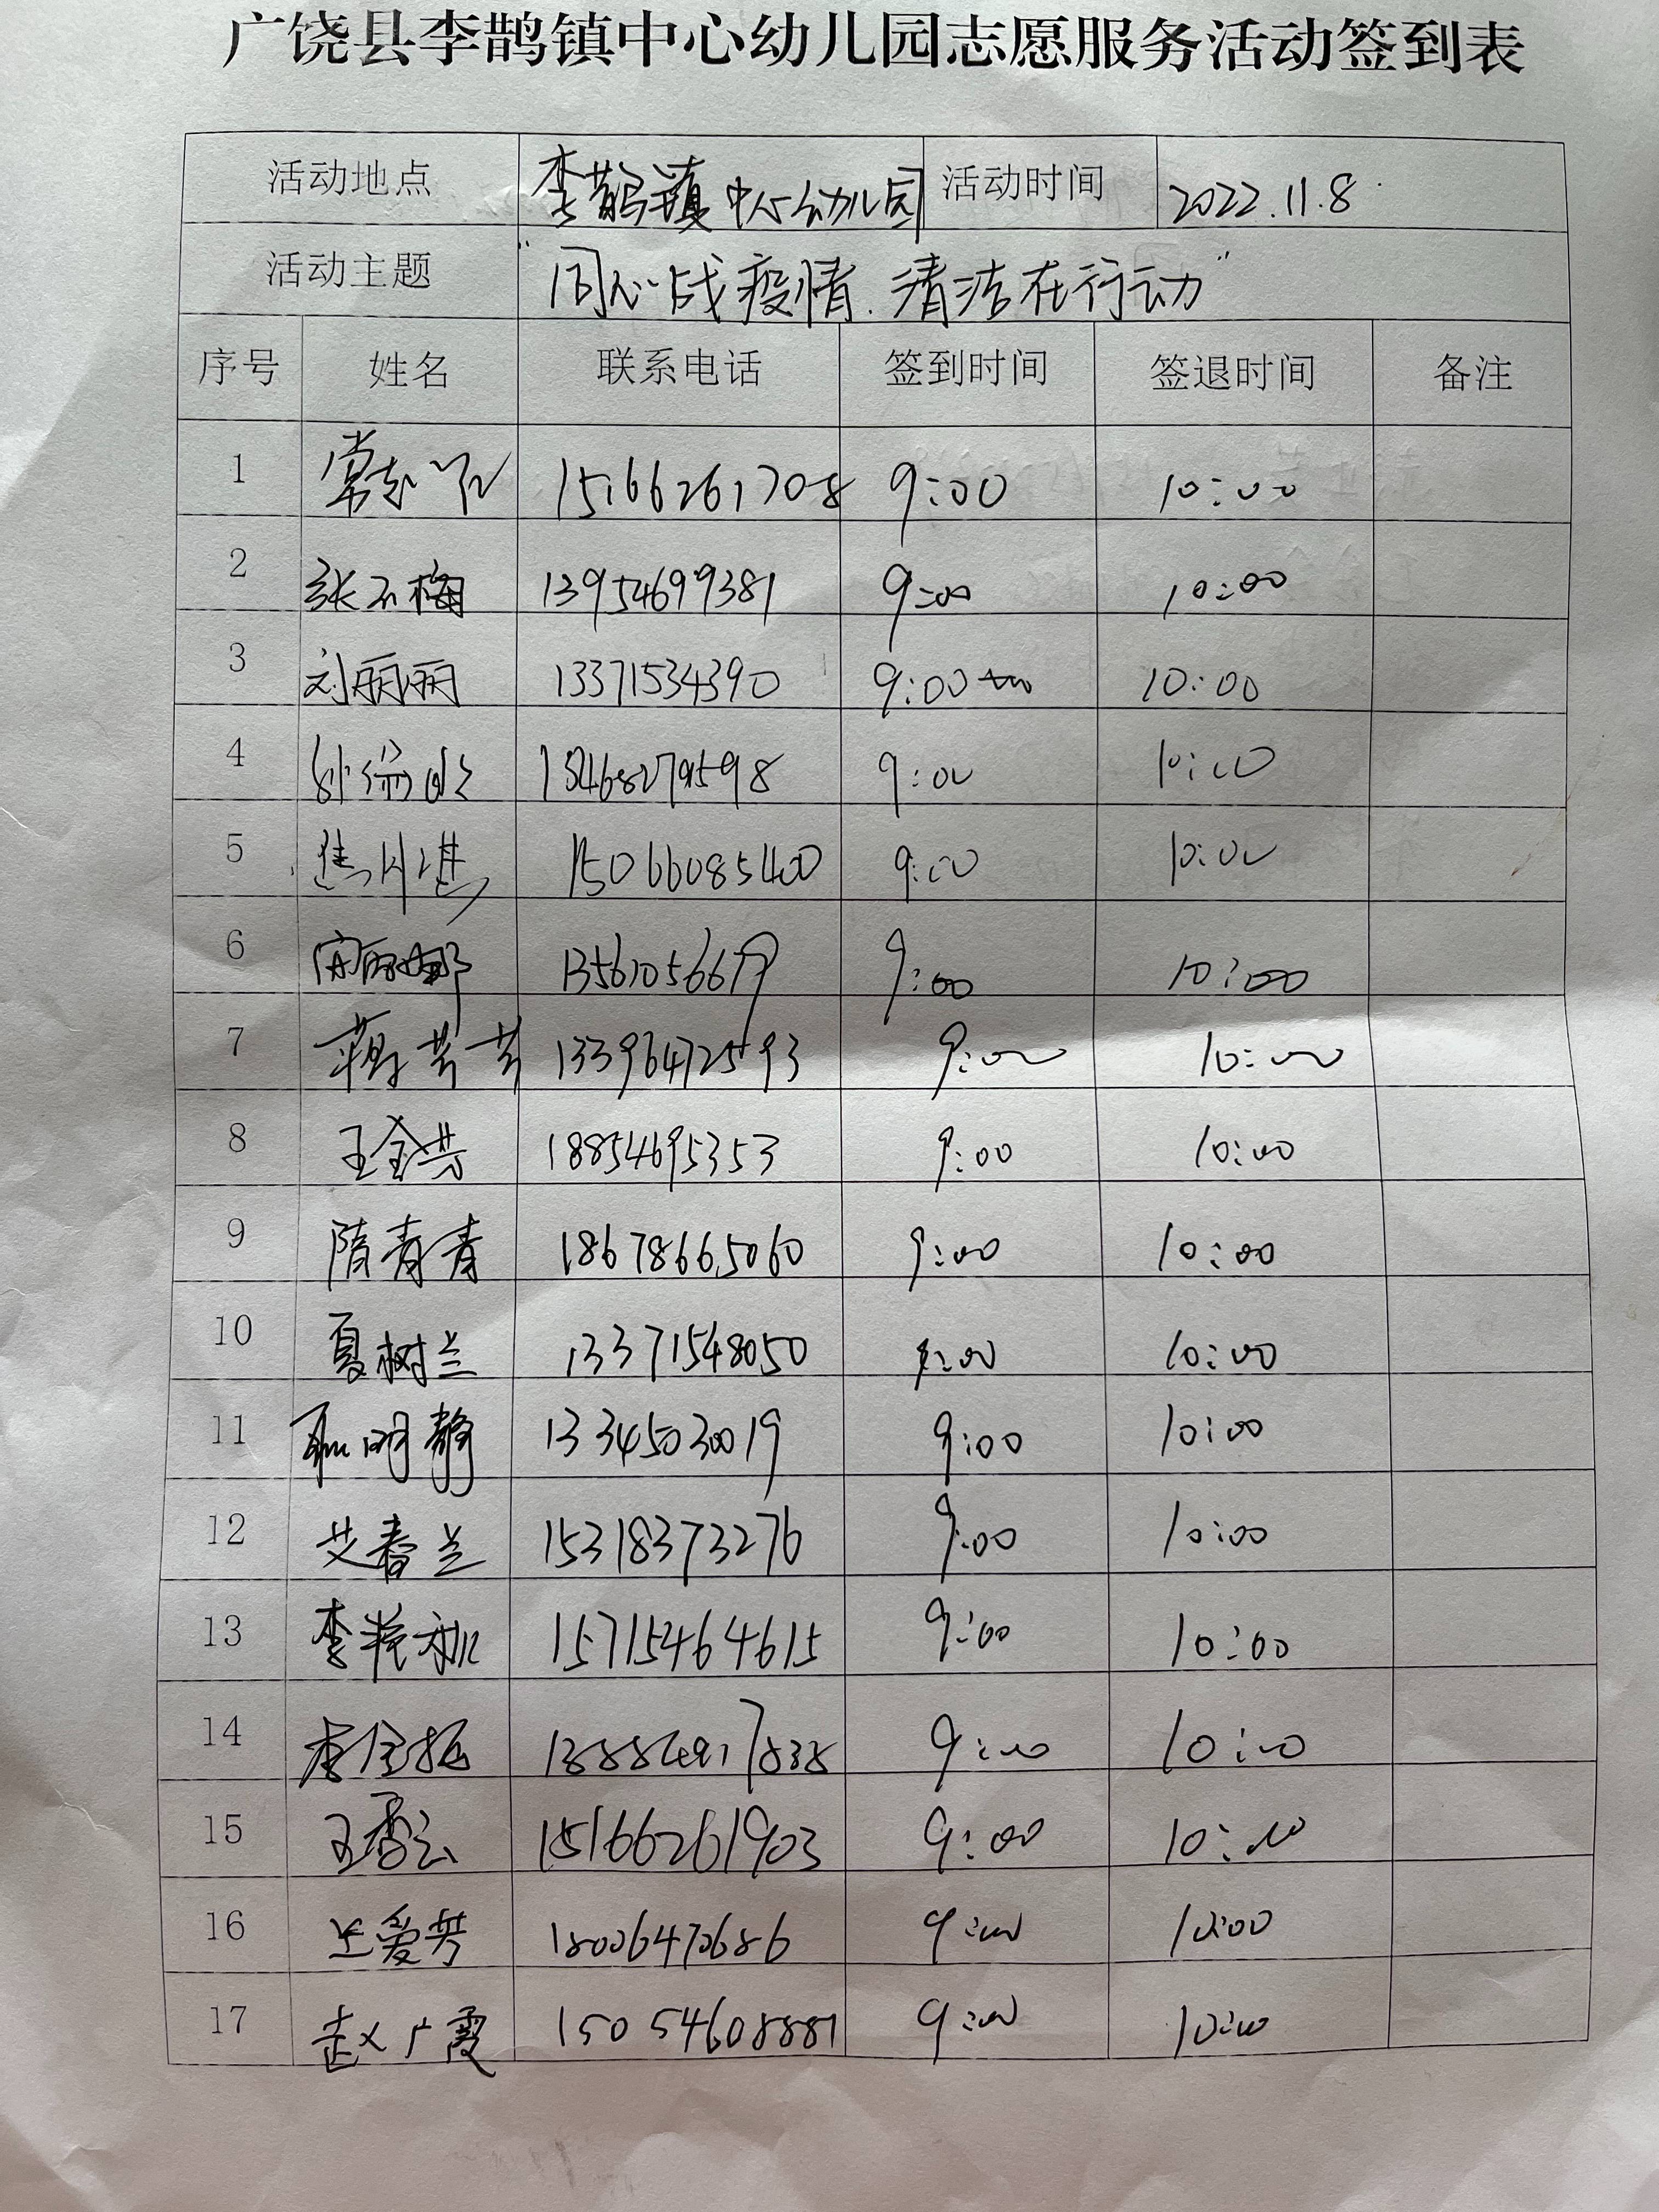 广饶县李鹊镇中心幼儿园志愿服务活动签到表
活动地点 李鹊镇中心幼儿园 活动时间 2022.11.8
活动主题 “同心战疫情.清洁在行动”
序号 姓名 联系电话 签到时间 签退时间 备注
1 15166261708 9:00 10:00
2 13954699381 9:00 10:00
3 刘丽丽 13371534390 9:00 10:00
4 9:00 10:00
5 15066085400 9:00 10:00
6 9:00 10:00
7 13396472593 9:00 10:00
8 王金芳 18854695353 9:00 10:00
9 隋青青 18678665060 9:00 10:00
10 夏树兰 13371548050 9:00 10:00
11 13345030019 9:00 10:00
12 艾春兰 15318373276 9:00 10:00
13 15715464615 9:00 10:00
14 9:00 10:00
15 王香云 15166261903 9:00 10:00
16 18006470686 9:00 10:00
17 赵广霞 15054608881 9:00 10:00